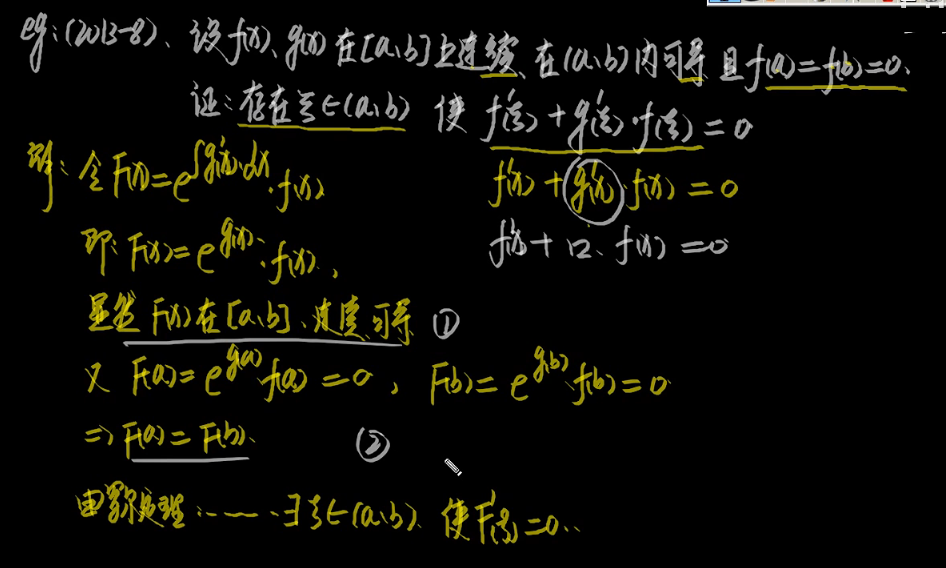 eg:(2013-8)、设f(x)、g(x)在[a,b]上连续、在(a,b)内可导且f(a)=f(b)=0.
证:存在ξ∈(a,b)使f'(ξ)+g'(ξ)·f(ξ)=0
证:令F(x)=e^{∫g'(x)·dx}·f(x)
f'(x)+g'(x)·f(x)=0
即:F(x)=e^{g(x)}·f(x),
f'(x)+口·f(x)=0
显然F(x)在[a,b]、连续可导 ①
又F(a)=e^{g(a)}f(a)=0, F(b)=e^{g(b)}·f(b)=0
⇒F(a)=F(b). ②
由罗尔定理:……∃ξ∈(a,b)、使F'(ξ)=0..